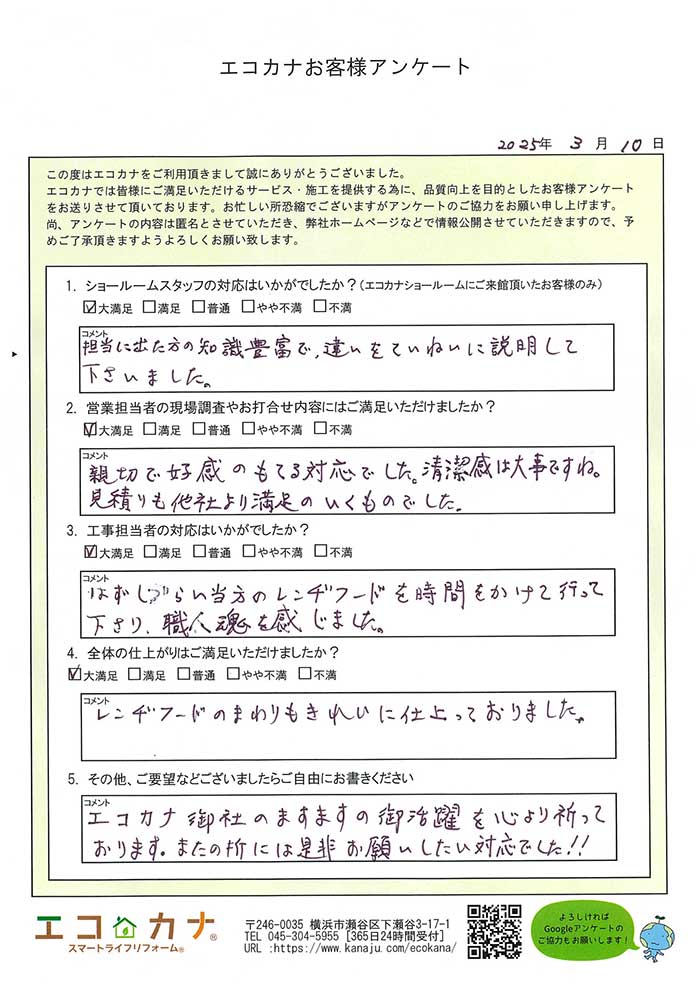 エコカナお客様アンケート
2025年 3月 10日
この度はエコカナをご利用頂きまして誠にありがとうございました。
エコカナでは皆様にご満足いただけるサービス・施工を提供する為に、品質向上を目的としたお客様アンケート
をお送りさせて頂いております。お忙しい所恐縮でございますがアンケートのご協力をお願い申し上げます。
尚、アンケートの内容は匿名とさせていただき、弊社ホームページなどで情報公開させていただきますので、予
めご了承頂きますようよろしくお願い致します。
1. ショールームスタッフの対応はいかがでしたか？(エコカナショールームにご来館頂いたお客様のみ)
☑大満足 □満足 □普通 □やや不満 □不満
コメント
担当に出た方の知識豊富で、違いをていねいに説明して
下さいました。
2. 営業担当者の現場調査やお打合せ内容にはご満足いただけましたか？
☑大満足 □満足 □普通 □やや不満 □不満
コメント
親切で好感のもてる対応でした。清潔感は大事ですね。
見積りも他社より満足のいくものでした。
3. 工事担当者の対応はいかがでしたか？
☑大満足 □満足 □普通 □やや不満 □不満
コメント
はずしづらい当方のレンヂフードを時間をかけて行って
下さり、職人魂を感じました。
4. 全体の仕上がりはご満足いただけましたか？
☑大満足 □満足 □普通 □やや不満 □不満
コメント
レンヂフードのまわりもきれいに仕上っておりました。
5. その他、ご要望などございましたらご自由にお書きください
コメント
エコカナ御社のますますの御活躍を心より祈って
おります。またの折には是非お願いしたい対応でした!!
エコカナ®
スマートライフリフォーム®
〒246-0035 横浜市瀬谷区下瀬谷3-17-1
TEL 045-304-5955 [365日24時間受付]
URL :https://www.kanaju.com/ecokana/
よろしければ
Googleアンケートの
ご協力もお願いします！